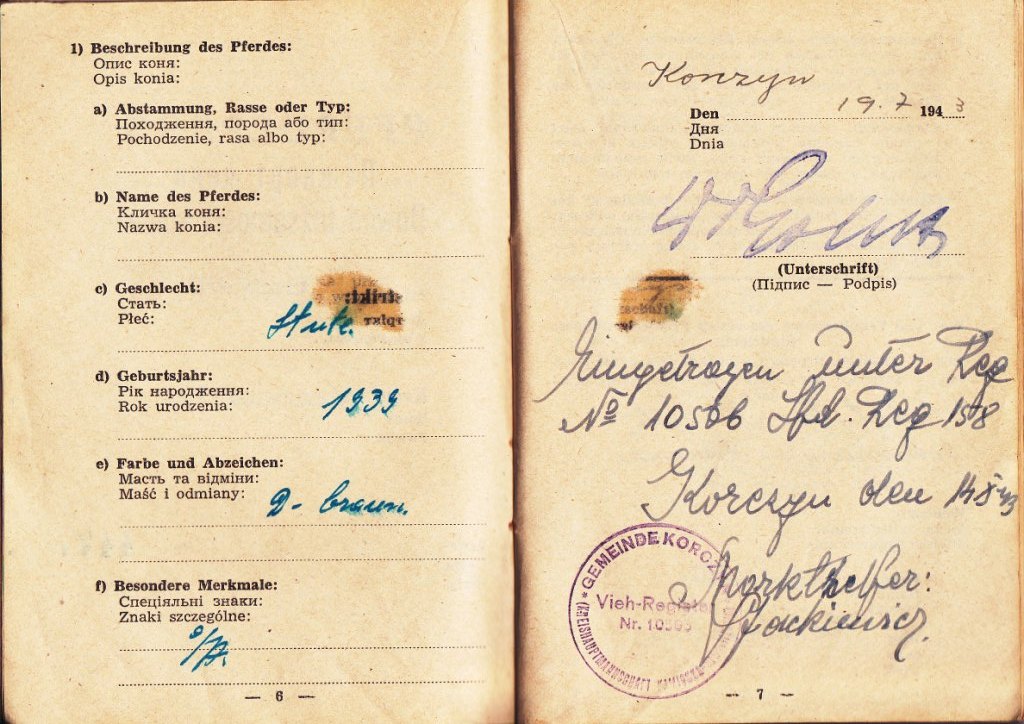 1) Beschreibung des Pferdes:
Опис коня:
Opis konia:
a) Abstammung, Rasse oder Typ:
Походження, порода або тип:
Pochodzenie, rasa albo typ:
b) Name des Pferdes:
Кличка коня:
Nazwa konia:
c) Geschlecht:
Стать:
Płeć:
Stute.
d) Geburtsjahr:
Рік народження:
Rok urodzenia:
1939
e) Farbe und Abzeichen:
Масть та відміни:
Maść i odmiany:
D- braun.
f) Besondere Merkmale:
Спеціяльні знаки:
Znaki szczególne:
— 6 —
Korczyn
Den 19.7 1943
Дня
Dnia
(Unterschrift)
(Підпис — Podpis)
Eingetragen unter Reg
No 10506 Lfd. Reg 158
Korczyn den 14 X 43
Markthelfer:
GEMEINDE KORCZYN
Vieh-Register
Nr.
— 7 —